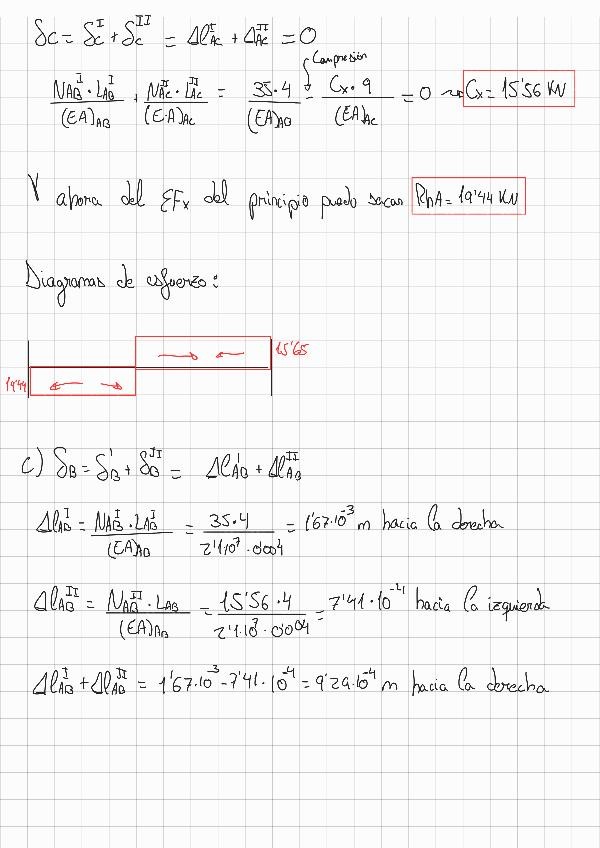 δc = δc^I + δc^II = Δl_AC^I + Δ_AC^II = 0
Compresión
N_AB^I · L_AB^I / (EA)_AB + N_AC^II · L_AC^II / (E·A)_AC = 35·4 / (EA)_AB - Cx·9 / (EA)_AC = 0 → Cx = 15'56 KN
Y ahora del ΣFx del principio puedo sacar RhA = 19'44 KN
Diagramas de esfuerzo:
15'65
19'44
C) δB = δB^I + δB^II = Δl_AB^I + Δl_AB^II
Δl_AB^I = N_AB^I · L_AB^I / (EA)_AB = 35·4 / 2'1·10^7 · 0'004 = 1'67·10^-3 m hacia la derecha
Δl_AB^II = N_AB^II · L_AB / (EA)_AB = 15'56·4 / 2'1·10^7 · 0'004 = 7'41·10^-4 hacia la izquierda
Δl_AB^I + Δl_AB^II = 1'67·10^-3 - 7'41·10^-4 = 9'29·10^-4 m hacia la derecha